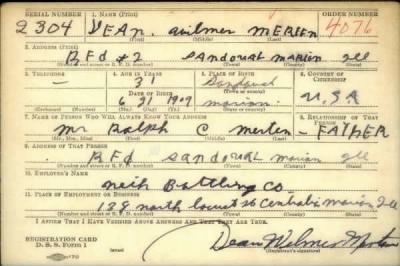 SERIAL NUMBER 1. NAME (Print) ORDER NUMBER
2304 DEAN. Wilmer MERTEN 4076
(First) (Middle) (Last)
2. ADDRESS (Print)
RFd #2 SANdoval MARION Ill
(Number and street or R. F. D. number) (Town) (County) (State)
3. TELEPHONE 4. AGE IN YEARS 5. PLACE OF BIRTH 6. COUNTRY OF CITIZENSHIP
31 Sandoval
DATE OF BIRTH (Town or county)
6 21 1909 marion U.S.A
(Mo.) (Day) (Yr.) (State or country)
7. NAME OF PERSON WHO WILL ALWAYS KNOW YOUR ADDRESS 8. RELATIONSHIP OF THAT PERSON
Mr Ralph C merten - FATHER
(Mr., Mrs., Miss) (First) (Middle) (Last)
9. ADDRESS OF THAT PERSON
RFd Sandoval marion Ill
(Number and street or R. F. D. number) (Town) (County) (State)
10. EMPLOYER'S NAME
Bottling Co
11. PLACE OF EMPLOYMENT OR BUSINESS
north locust st Centralia marion Ill
(Number and street or R. F. D. number) (Town) (County) (State)
I AFFIRM THAT I HAVE VERIFIED ABOVE ANSWERS AND THAT THEY ARE TRUE.
REGISTRATION CARD
D. S. S. Form 1
Dean Wilmer Merten
(Registrant's signature)